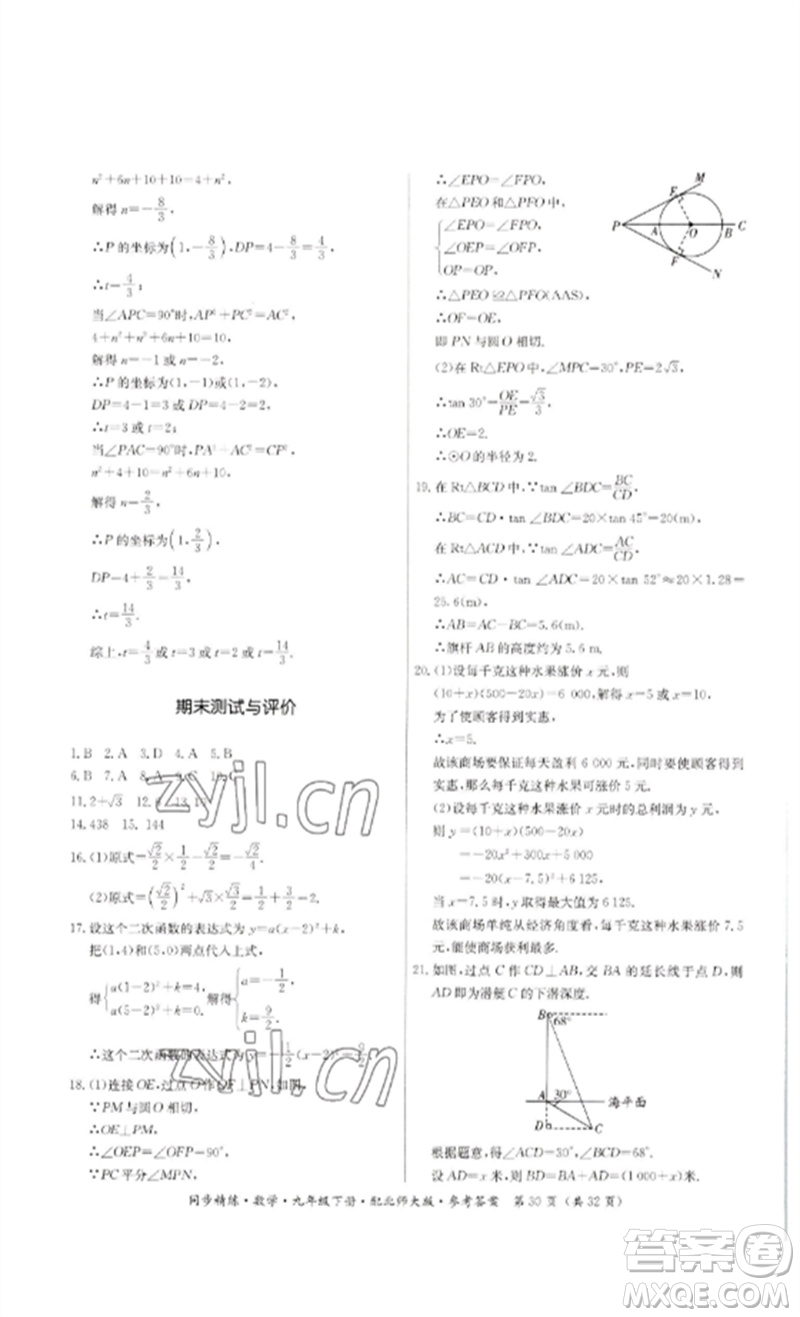 n²+6n+10+10=4+n²,
解得 n=-8/3,
∴P 的坐标为(1,-8/3),DP=4-8/3=4/3,
∴t=4/3;
当∠APC=90°时,AP²+PC²=AC²,
4+n²+n²+6n+10=10,
解得 n=-1 或 n=-2,
∴P 的坐标为(1,-1)或(1,-2),
DP=4-1=3 或 DP=4-2=2,
∴t=3 或 t=2;
当∠PAC=90°时,PA²+AC²=CP²,
n²+4+10=n²+6n+10,
解得 n=2/3,
∴P 的坐标为(1,2/3),
DP=4+2/3=14/3,
∴t=14/3.
综上,t=4/3 或 t=3 或 t=2 或 t=14/3.
期末测试与评价
1.B 2.A 3.D 4.A 5.B
6.B 7.A 8.A 9.C 10.C
11.2+√3
14.438 15.144
16.(1)原式=√2/2×1/2-√2/2=-√2/4.
(2)原式=(√2/2)²+√3×√3/3=1/2+1=3/2.
17.设这个二次函数的表达式为 y=a(x-2)²+k,
把(1,4)和(5,0)两点代入上式,
得{a(1-2)²+k=4, a(5-2)²+k=0, 解得{a=-1/2, k=9/2.
∴这个二次函数的表达式为 y=-1/2(x-2)²+9/2.
18.(1)连接 OE,过点 O 作 OF⊥PN,如图,
∵PM 与圆 O 相切,
∴OE⊥PM,
∴∠OEP=∠OFP=90°,
∵PC 平分∠MPN,
∴∠EPO=∠FPO,
在△PEO 和△PFO 中,
{∠EPO=∠FPO,
∠OEP=∠OFP,
OP=OP,
∴△PEO≌△PFO(AAS),
∴OF=OE,
即 PN 与圆 O 相切.
(2)在 Rt△EPO 中,∠MPC=30°,PE=2√3,
∴tan 30°=OE/PE=√3/3,
∴OE=2.
∴⊙O 的半径为 2.
M
E
P A O B C
F
N
19.在 Rt△BCD 中,∵tan ∠BDC=BC/CD,
∴BC=CD·tan ∠BDC=20×tan 45°=20(m),
在 Rt△ACD 中,∵tan ∠ADC=AC/CD,
∴AC=CD·tan ∠ADC=20×tan 52°≈20×1.28=
25.6(m),
∴AB=AC-BC=5.6(m).
∴旗杆 AB 的高度约为 5.6 m.
20.(1)设每千克这种水果涨价 x 元,则
(10+x)(500-20x)=6 000,解得 x=5 或 x=10,
为了使顾客得到实惠,
∴x=5.
故该商场要保证每天盈利 6 000 元,同时要使顾客得到
实惠,那么每千克这种水果涨价 5 元.
(2)设每千克这种水果涨价 x 元时的总利润为 y 元,
则 y=(10+x)(500-20x)
=-20x²+300x+5 000
=-20(x-7.5)²+6 125,
当 x=7.5 时,y 取得最大值为 6 125.
故该商场单纯从经济角度看,每千克这种水果涨价 7.5
元,能使商场获利最多.
21.如图,过点 C 作 CD⊥AB,交 BA 的延长线于点 D,则
AD 即为潜艇 C 的下潜深度.
B
68°
A 30° 海平面
D C
根据题意,得∠ACD=30°,∠BCD=68°.
设 AD=x 米,则 BD=BA+AD=(1 000+x)米.
同步精练·数学·九年级下册·配北师大版·参考答案 第 30 页 (共 32 页)
zyjl.cn
zyjl.cn
答案卷